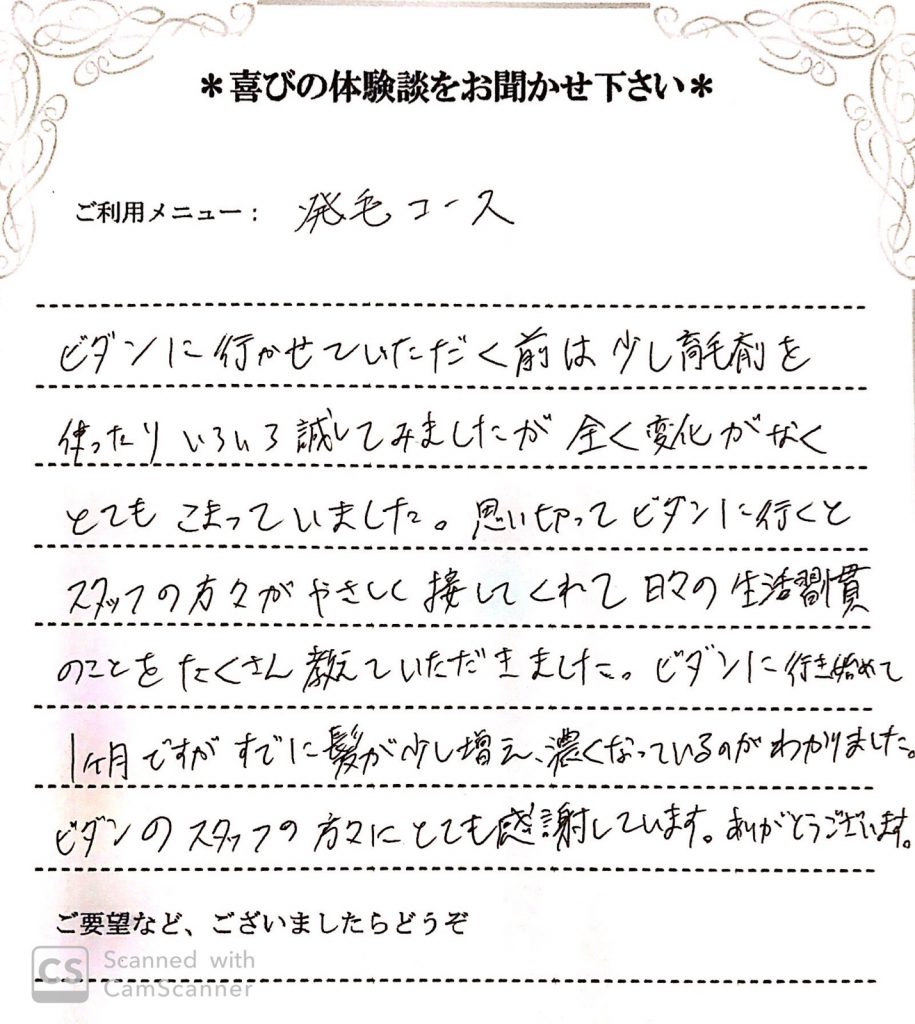 ＊喜びの体験談をお聞かせ下さい＊
ご利用メニュー： 発毛コース
ビダンに行かせていただく前は少し育毛剤を
使ったりいろいろ試してみましたが全く変化がなく
とてもこまっていました。思い切ってビダンに行くと
スタッフの方々がやさしく接してくれて日々の生活習慣
のことをたくさん教えていただきました。ビダンに行き始めて
1ヶ月ですがすでに髪が少し増え、濃くなっているのがわかりました。
ビダンのスタッフの方々にとても感謝しています。ありがとうございます。
ご要望など、ございましたらどうぞ
CS Scanned with
CamScanner